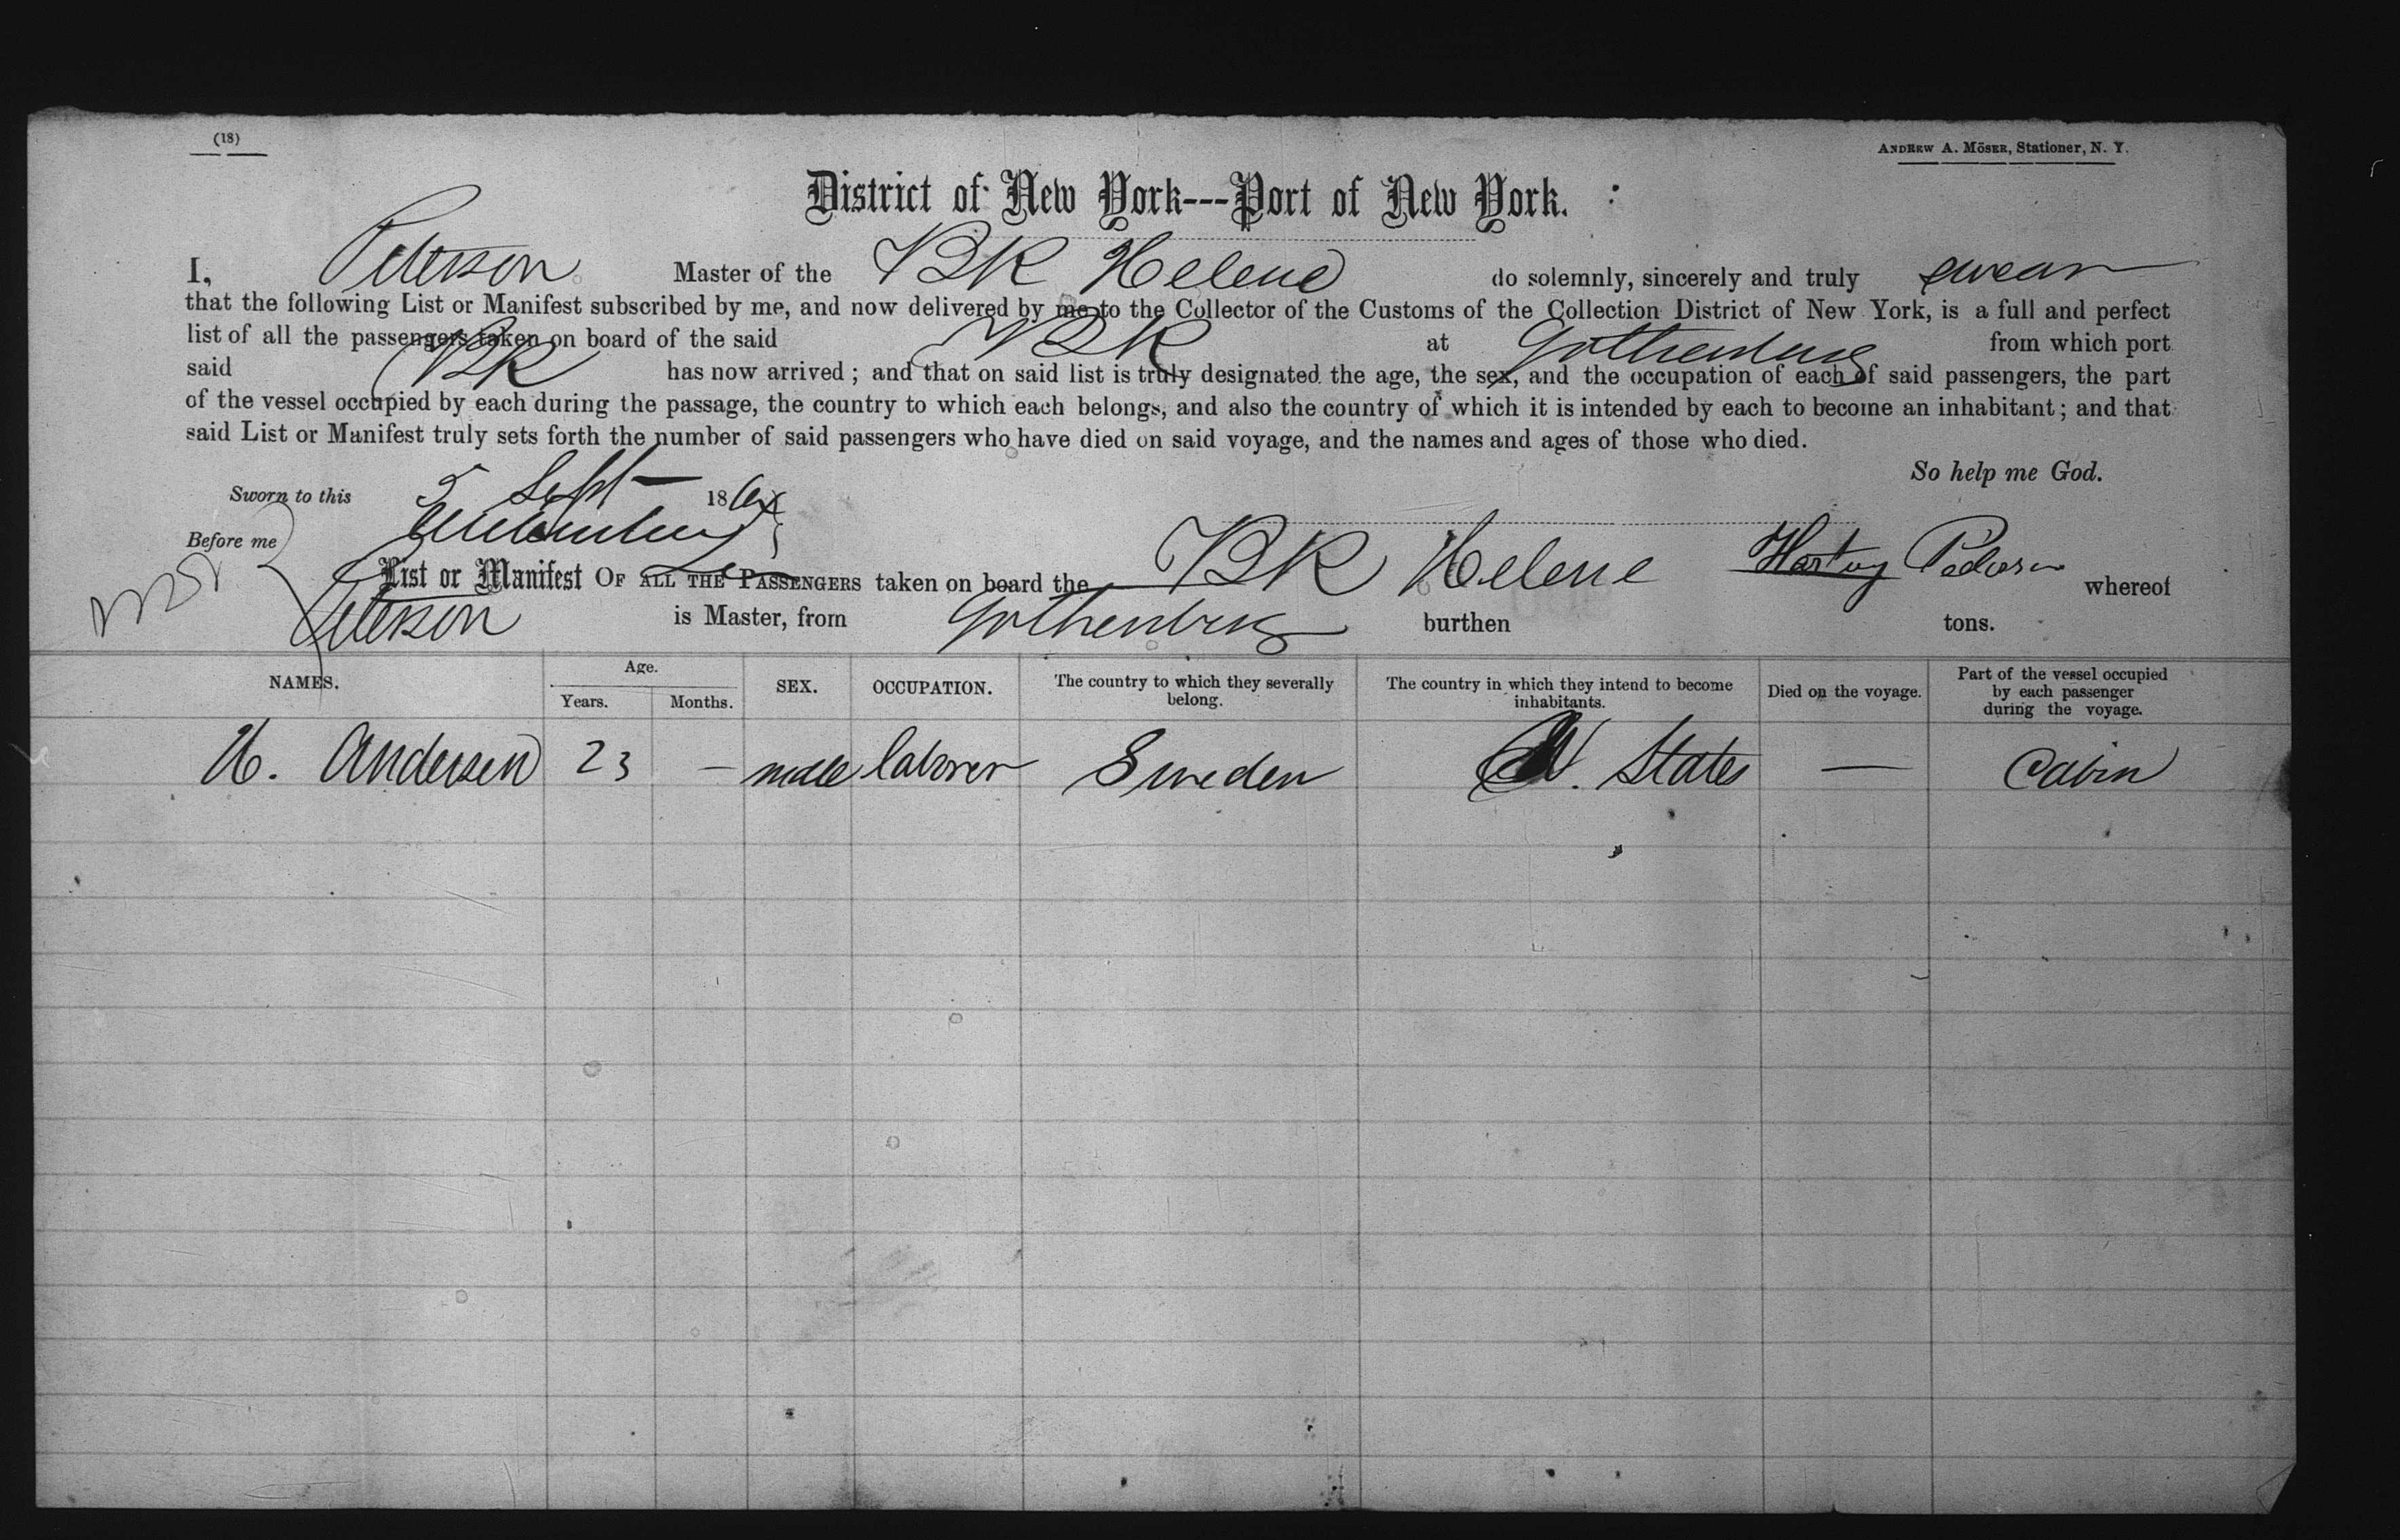 (18)
ANDREW A. MÖSER, Stationer, N. Y.
District of New York---Port of New York.
I, Peterson Master of the BK Helene do solemnly, sincerely and truly swear
that the following List or Manifest subscribed by me, and now delivered by me to the Collector of the Customs of the Collection District of New York, is a full and perfect
list of all the passengers taken on board of the said BK at Gothenburg from which port
said BK has now arrived; and that on said list is truly designated the age, the sex, and the occupation of each of said passengers, the part
of the vessel occupied by each during the passage, the country to which each belongs, and also the country of which it is intended by each to become an inhabitant; and that
said List or Manifest truly sets forth the number of said passengers who have died on said voyage, and the names and ages of those who died.
So help me God.
Sworn to this 5 Sept 186
Before me
List or Manifest OF ALL THE PASSENGERS taken on board the BK Helene whereof
Peterson is Master, from Gothenburg burthen tons.
NAMES. Age. Years. Months. SEX. OCCUPATION. The country to which they severally belong. The country in which they intend to become inhabitants. Died on the voyage. Part of the vessel occupied by each passenger during the voyage.
Andersen 23 — male laborer Sweden U. States — Cabin